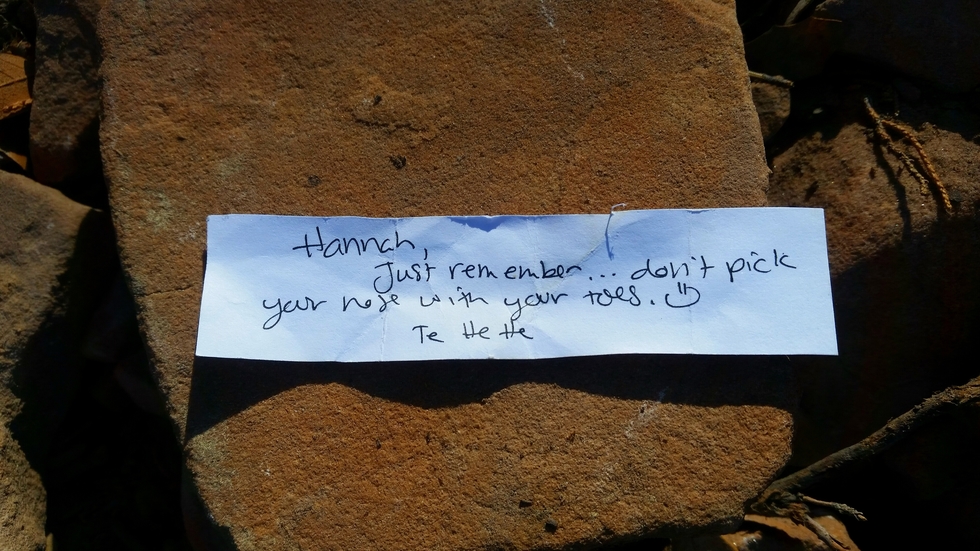 Hannah,
Just remember... don't pick
your nose with your toes. :)
Te He He